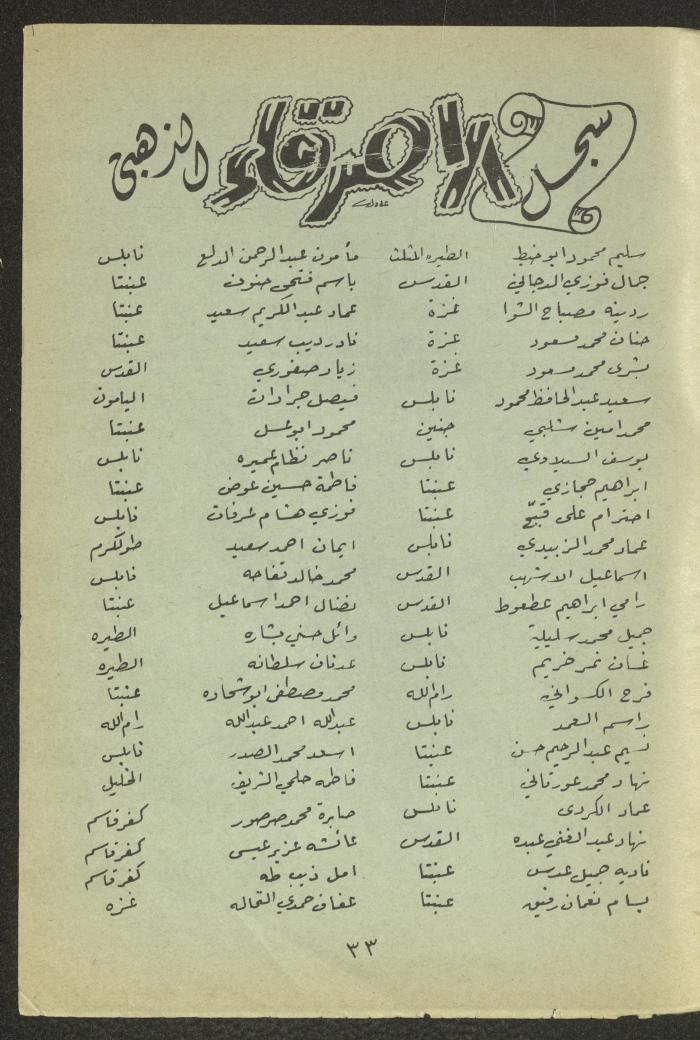 سجل الاصدقاء الذهبي
سليم محمود ابو خيط الطيره المثلث مأمون عبد الرحمن الدلع نابلس
جمال فوزي الدجاني القدس باسم فتحي حنون عنبتا
ردينه مصباح الشوا غزة عماد عبد الكريم سعيد عنبتا
حنان محمد مسعود غزة نادر ديب سعيد عنبتا
بشرى محمد مسعود غزة زياد صفوري القدس
سعيد عبد الحافظ محمود نابلس فيصل جرادات اليامون
محمد امين شلبي جنين محمود ابو عسل عنبتا
يوسف السيلاوي نابلس ناصر نظام عميره نابلس
ابراهيم حجازي عنبتا فاطمة حسين عوض عنبتا
احترام علي قبّج عنبتا فوزي هشام عرفات نابلس
عماد محمد الزبيدي نابلس ايمان احمد سعيد طولكرم
اسماعيل الاشهب القدس محمد خالد تفاحه نابلس
رامي ابراهيم عطعوط القدس نضال احمد اسماعيل عنبتا
جميل محمد سليلة نابلس وائل حسني بشاره الطيره
غسان نمر خريم نابلس عدنان سلطانه الطيره
فرح رام الله محمد مصطفى ابو شحاده عنبتا
راسم العمد نابلس عبدالله احمد عبدالله رام الله
نسيم عبد الرحيم حسن عنبتا اسعد محمد الصدر نابلس
نهاد محمد عورتاني عنبتا فاطمه حلمي الشريف الخليل
عماد الكردي نابلس صابرة محمد صرصور كفر قاسم
نهاد عبد الغني عبده القدس عائشه عزير عيسى كفر قاسم
ناديه جميل عدس عنبتا امل ذيب طه كفر قاسم
بسام نعمان رفيق عنبتا عفاف حمدي غزه
٣٣